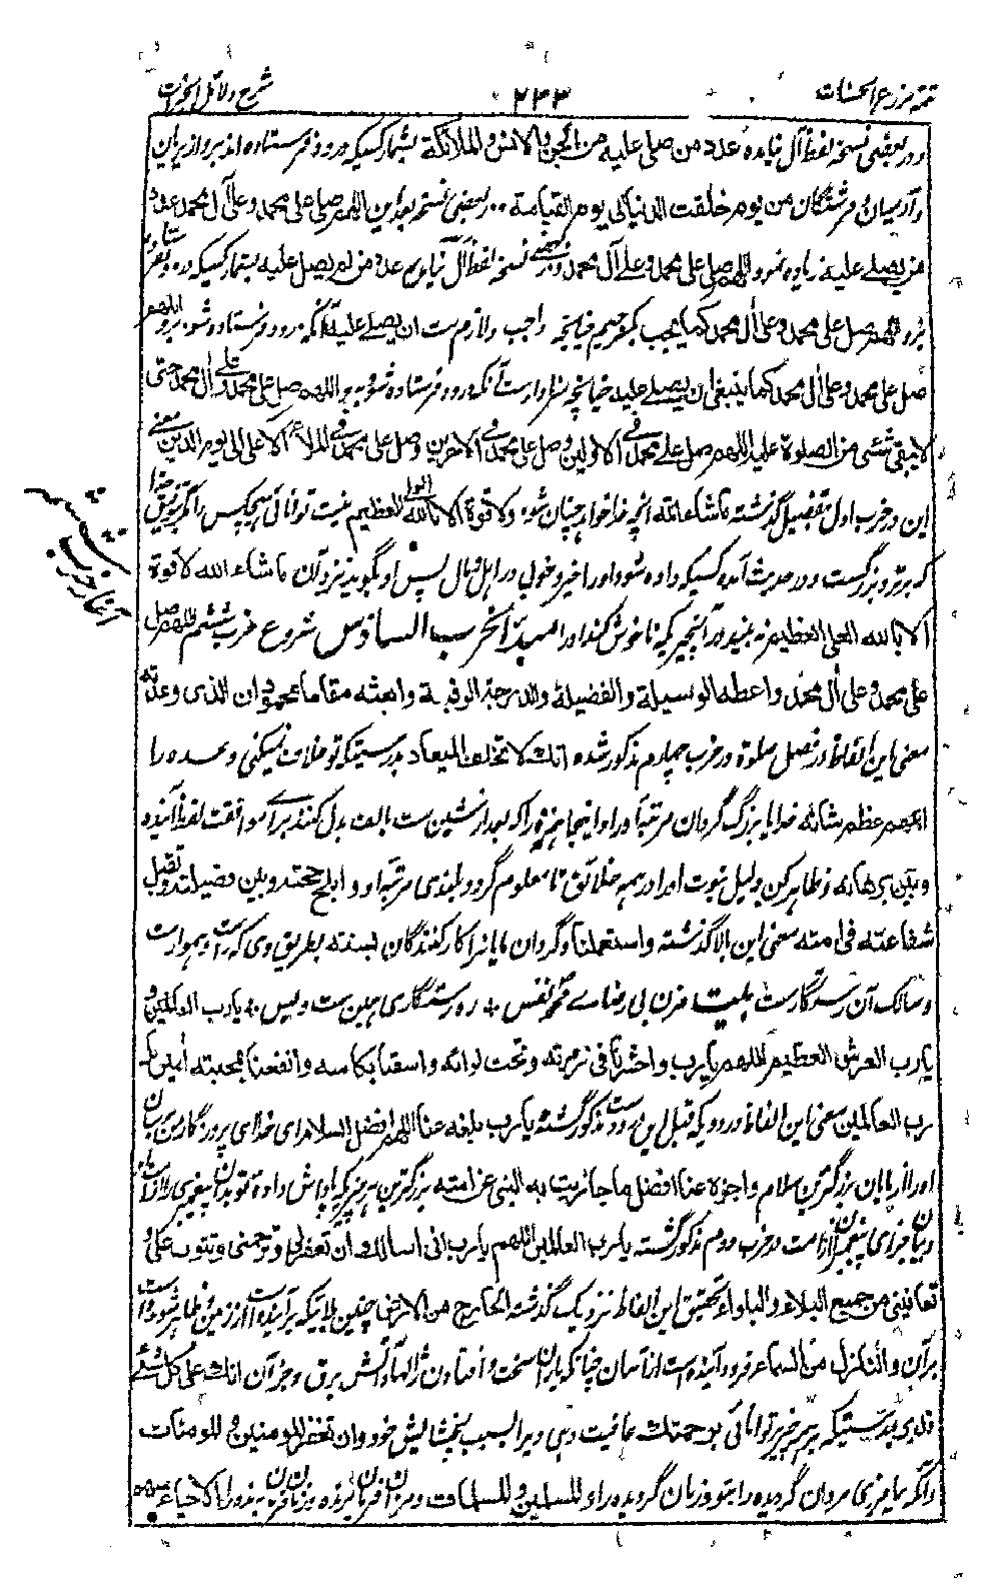 تتمه مزرع الحسنات ٢٣٣ شرح دلائل الخیرات
ودر بعضی نسخه لفظ آل نیامده عدد من صلی علیه من الجن والانس والملائکة بشمار کسیکه درود فرستاده اند برو از پریان
وآدمیان وفرشتگان من یوم خلقت الدنیا الی یوم القیامة ودر بعضی نسخه بعد این اللهم صل علی محمد وعلی آل محمد عدد
من یصلے علیه زیاده نموده اللهم صل علی محمد وعلے آل محمد ودر بعضے نسخه لفظ آل نیاوره عدد من لم یصل علیه بشمار کسیکه درود نفرستاده
برو اللهم صل علی محمد وعلی آل محمد کما یجب چنانچه واجب ولازم ست ان یصلے علیه آنکه درود فرستاده شود برو اللهم
صل علی محمد وعلی آل محمد کما ینبغی ان یصلے علیه چنانچه سزاوار ست آنکه درود فرستاده شود برو اللهم صل علی محمد وعلی آل محمد حتی
لا یبقی شئ من الصلوة علیه اللهم صل علے محمد فے الاولین وصل علی محمد فے الاخرین وصل علی محمد فے الملاء الاعلی الی یوم الدین معنی
این در حزب اول بتفصیل گذشته ما شاء الله انچه خدا خواهد چنان شود ولا قوة الا بالله العلی العظیم نیست توانائی هیچکس را مگر بتوفیق خدا
که برتر وبزرگست ودر حدیث آمده کسیکه داده شود او را خیر وخوبی در اهل ومال پس او بگوید نزد آن ما شاء الله لا قوة
الا بالله العلی العظیم نه بیند در آنچیزیکه ناخوش کند او را المبدأ الحزب السادس شروع حزب ششم اللهم صل
علی محمد وعلی آل محمد واعطه الوسیلة والفضیلة والدرجة الرفیعة وابعثه مقاما محمودان الذی وعدته
معنی این الفاظ در فصل صلوة در حزب چهارم مذکور شده انک لا تخلف المیعاد بدرستیکه تو خلاف نمیکنی وعده را
اللهم عظم شانه خدایا بزرگ گردان مرتبه او را واینجا همزه را که بعد از شین ست بالف بدل کنند براے موافقت لفظ آینده
وبین برهانه وظاهر کن دلیل نبوت او را در همه خلائق تا معلوم گردد بلندی مرتبه او وابلج حجته وبین فضیلته وتقبل
شفاعته فی امته معنی این بالا گذشته واستعملنا وگردان ما را کار کنندگان بسنته بطریق وی که راست وهموار ست
وسالک آن رستگار ست بیت مزن بی رضاے محمد نفس ÷ ره رستگاری همین ست وبس ÷ یارب العالمین و
یارب العرش العظیم اللهم یارب واحشرنا فی زمرته وتحت لوائه واسقنا بکاسه وانفعنا بمحبته آمین یا
رب العالمین معنی این الفاظ درود یکه قبل این مذکور گشته یارب بلغه عنا افضل السلام ای خدای پروردگار من برسان
او را از ما یان بزرگترین سلام واجزه عنا افضل ما جازیت به النبی عن امته
در حزب دوم مذکور گشته یارب العالمین اللهم یارب انی اسالک ان تغفرلی وترحمنی وتتوب علی و
تعافینی من جمیع البلاء والبلواء تحقیق این الفاظ نزدیک گذشته الخارج من الارض چنین بلائیکه برآینده است از زمین
والنازل من السماء وفرود آینده است از آسمان چنانکه باران سخت وافتادن ژاله وآتش برق وجز آن انک علی کل شئ
قدیر بدرستیکه بر هر چیز توانائی برحمتک عافیت دهی مرا بسبب بخشایش خود وان تغفر للمومنین والمومنات
وآنکه بیامرزی مردان گرویده را بتو وزنان گرویده را والمسلمین والمسلمات ومردان فرمانبرنده وزنان فرمانبرنده را الاحیاء منهم
آغاز حزب ششم